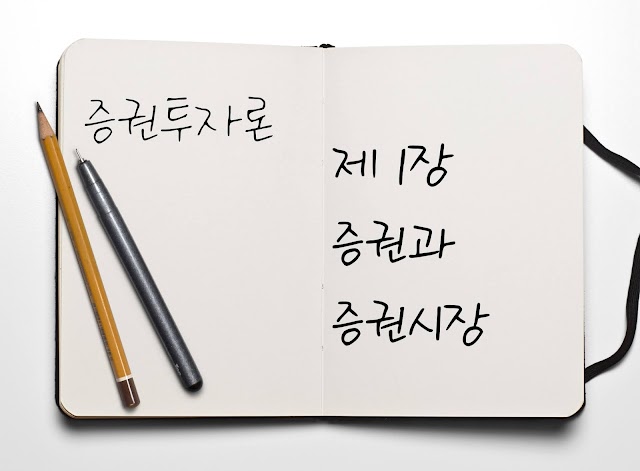 증권투자론
제 1장
증권과
증권시장